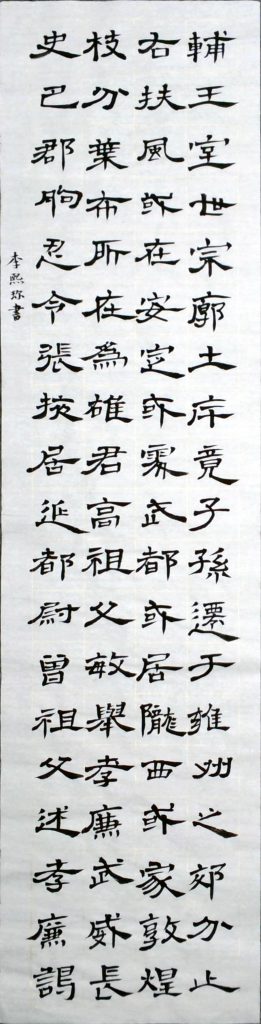 輔王室世宗廓土斥竟子孫遷于雍州之郊分止
右扶風或在安定或處武都或居隴西或家敦煌
枝分葉布所在為雄君高祖父敏舉孝廉武威長
史巴郡朐忍令張掖居延都尉曾祖父述孝廉謁
李熙書